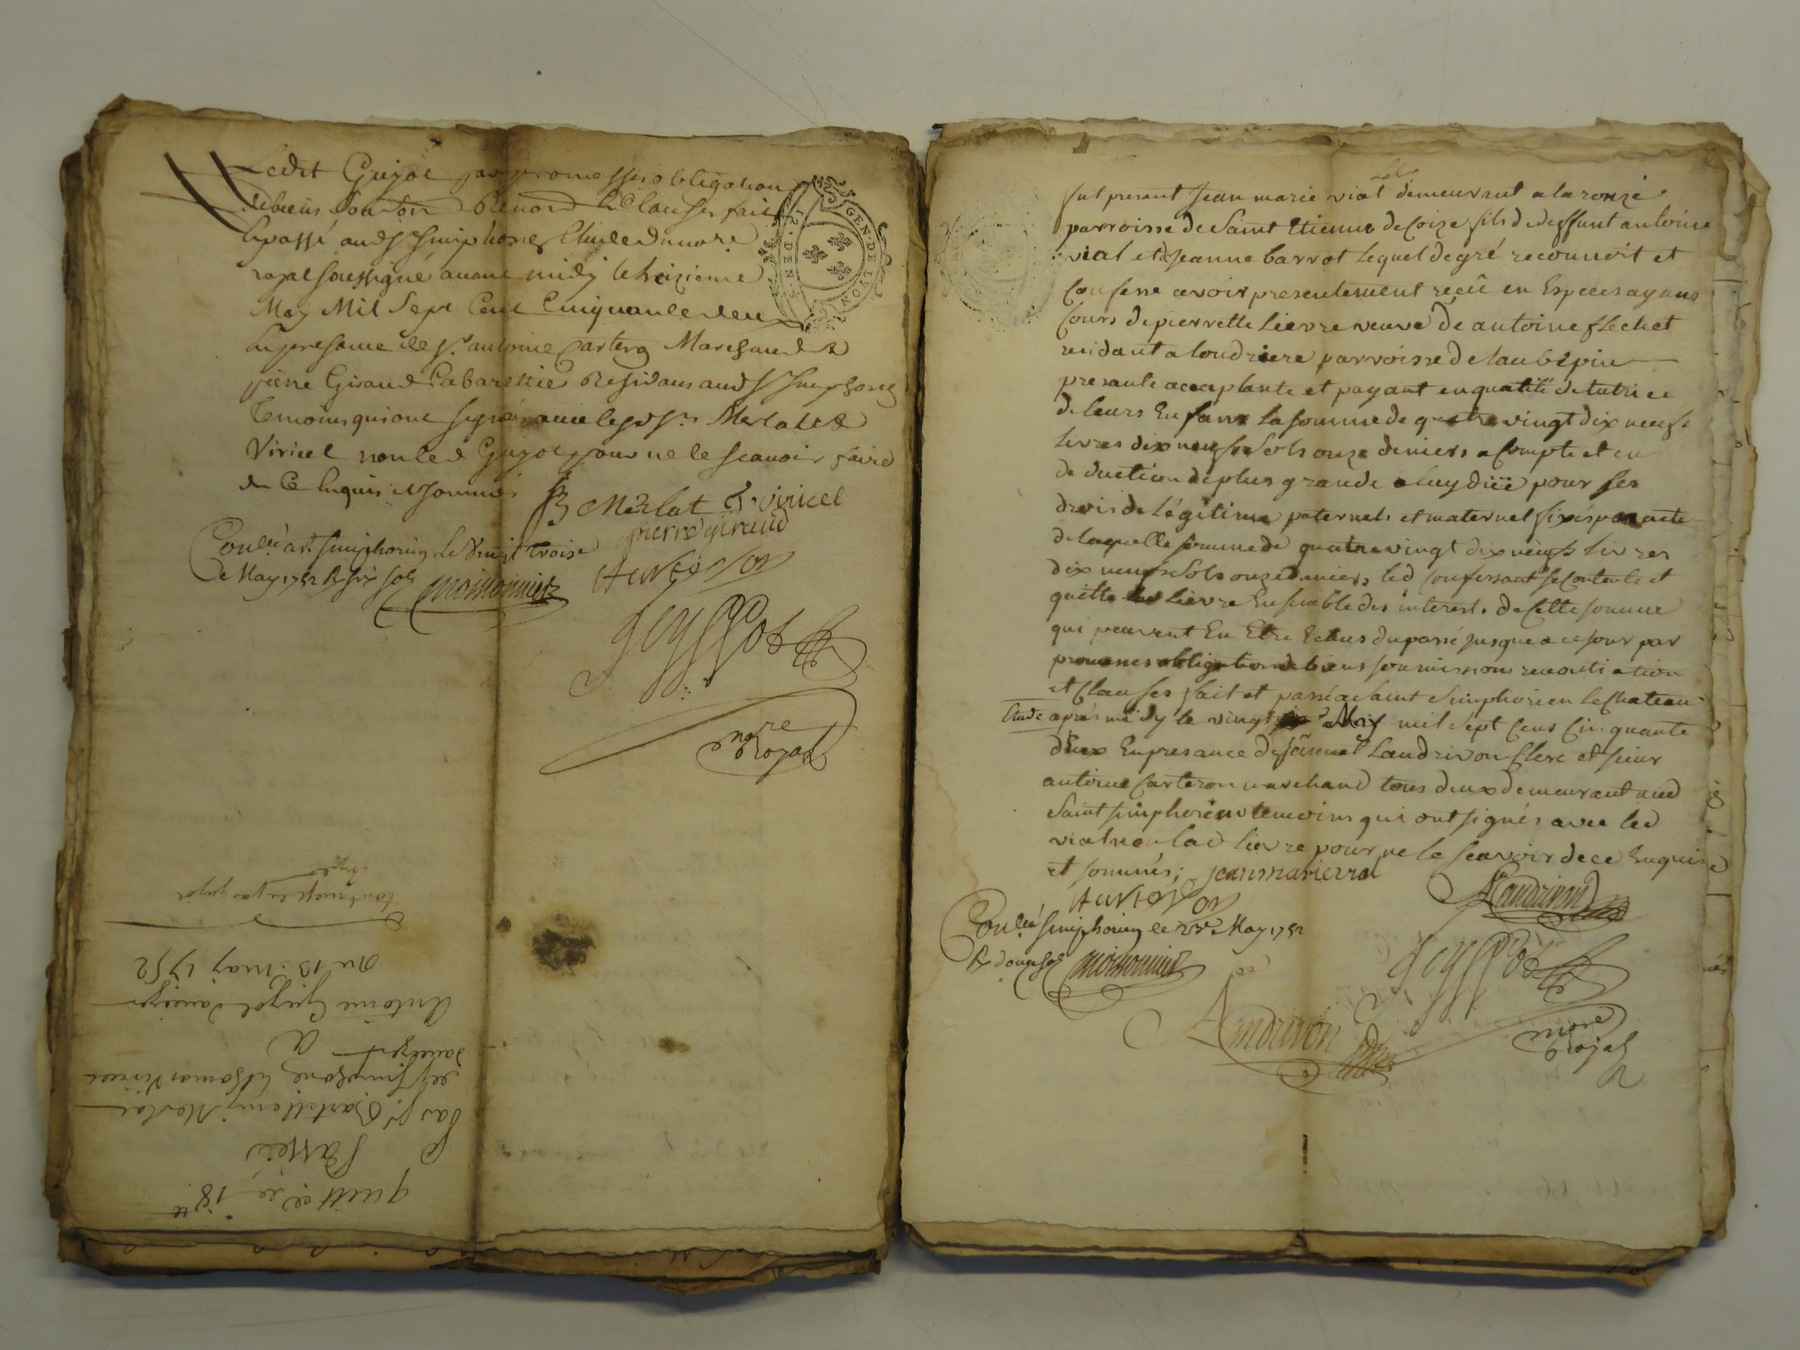 Ledit Guyot par promesses obligation
de biens soubm renon et clauses fait
et passé aud St simphorien Etude du no.re
royal soussigné avant midy le treizieme
May Mil Sept Cent Cinquante deux
En presence de sr antoine Carteron Marchand &
pierre Giraud Cabarettier Residans aud St simphorien
temoins qui ont signé avec lesd srs Merlat &
Viricel non led Guyot pour ne le scavoir faire
de Ce Enquis et sommés
B Merlat t viricel
pierre giraud
Carteron
Conllé a st simphorien Le Vingt trois
May 1752 R six sols
GEN · DE LYON
no.re
Royal
quittance 18 tt
Passée
Par sr Bartellemy Merlat
de st simphorien & thomas Viricel
A
Antoine Guyot
du 13 may 1752
fut present Jean marie vial demeurant a la ronzé
parroisse de Saint Etienne de Coize fils de deffunt antoine
vial et de Jeanne barrot lequel de gré reconnoit et
Confesse avoir presentement reçû en Especes ayans
Cours de pierrette Lievre veuve de antoine flechet
residant a loudriere parroisse de laubépin
presante acceptante et payant en qualité de tutrice
de leurs Enfans La somme de quatre vingt dix neufs
livres dix neufs sols onze deniers a Compte et en
deduction de plus grande a luy düe pour ses
drois de Légitime paternels et maternel fixés par acte
de laquelle somme de quatre vingt dix neufs livres
dix neufs sols onze deniers led Confessant se Contente et
quitte lad Lievre Ensemble des interest de Cette somme
qui peuvent En Etre Echus du passé jusque a ce jour par
promesses obligation de biens soumission renontiation
et Clauses fait et passé a saint simphorien le chateau
Etude après midy le vingt May mil sept cens Cinquante
deux En presance de Landrivon Clerc et sieur
antoine Carteron marchand tous deux demeurant aud
Saint simphorien temoins qui ont signés avec led
vial non lad lievre pour ne le scavoir de ce Enquise
et sommés; jean marie vial
Carteron
Landrivon
Conllé st simphorien le May 1752
R douze sols
Landrivon
no.re
Royal